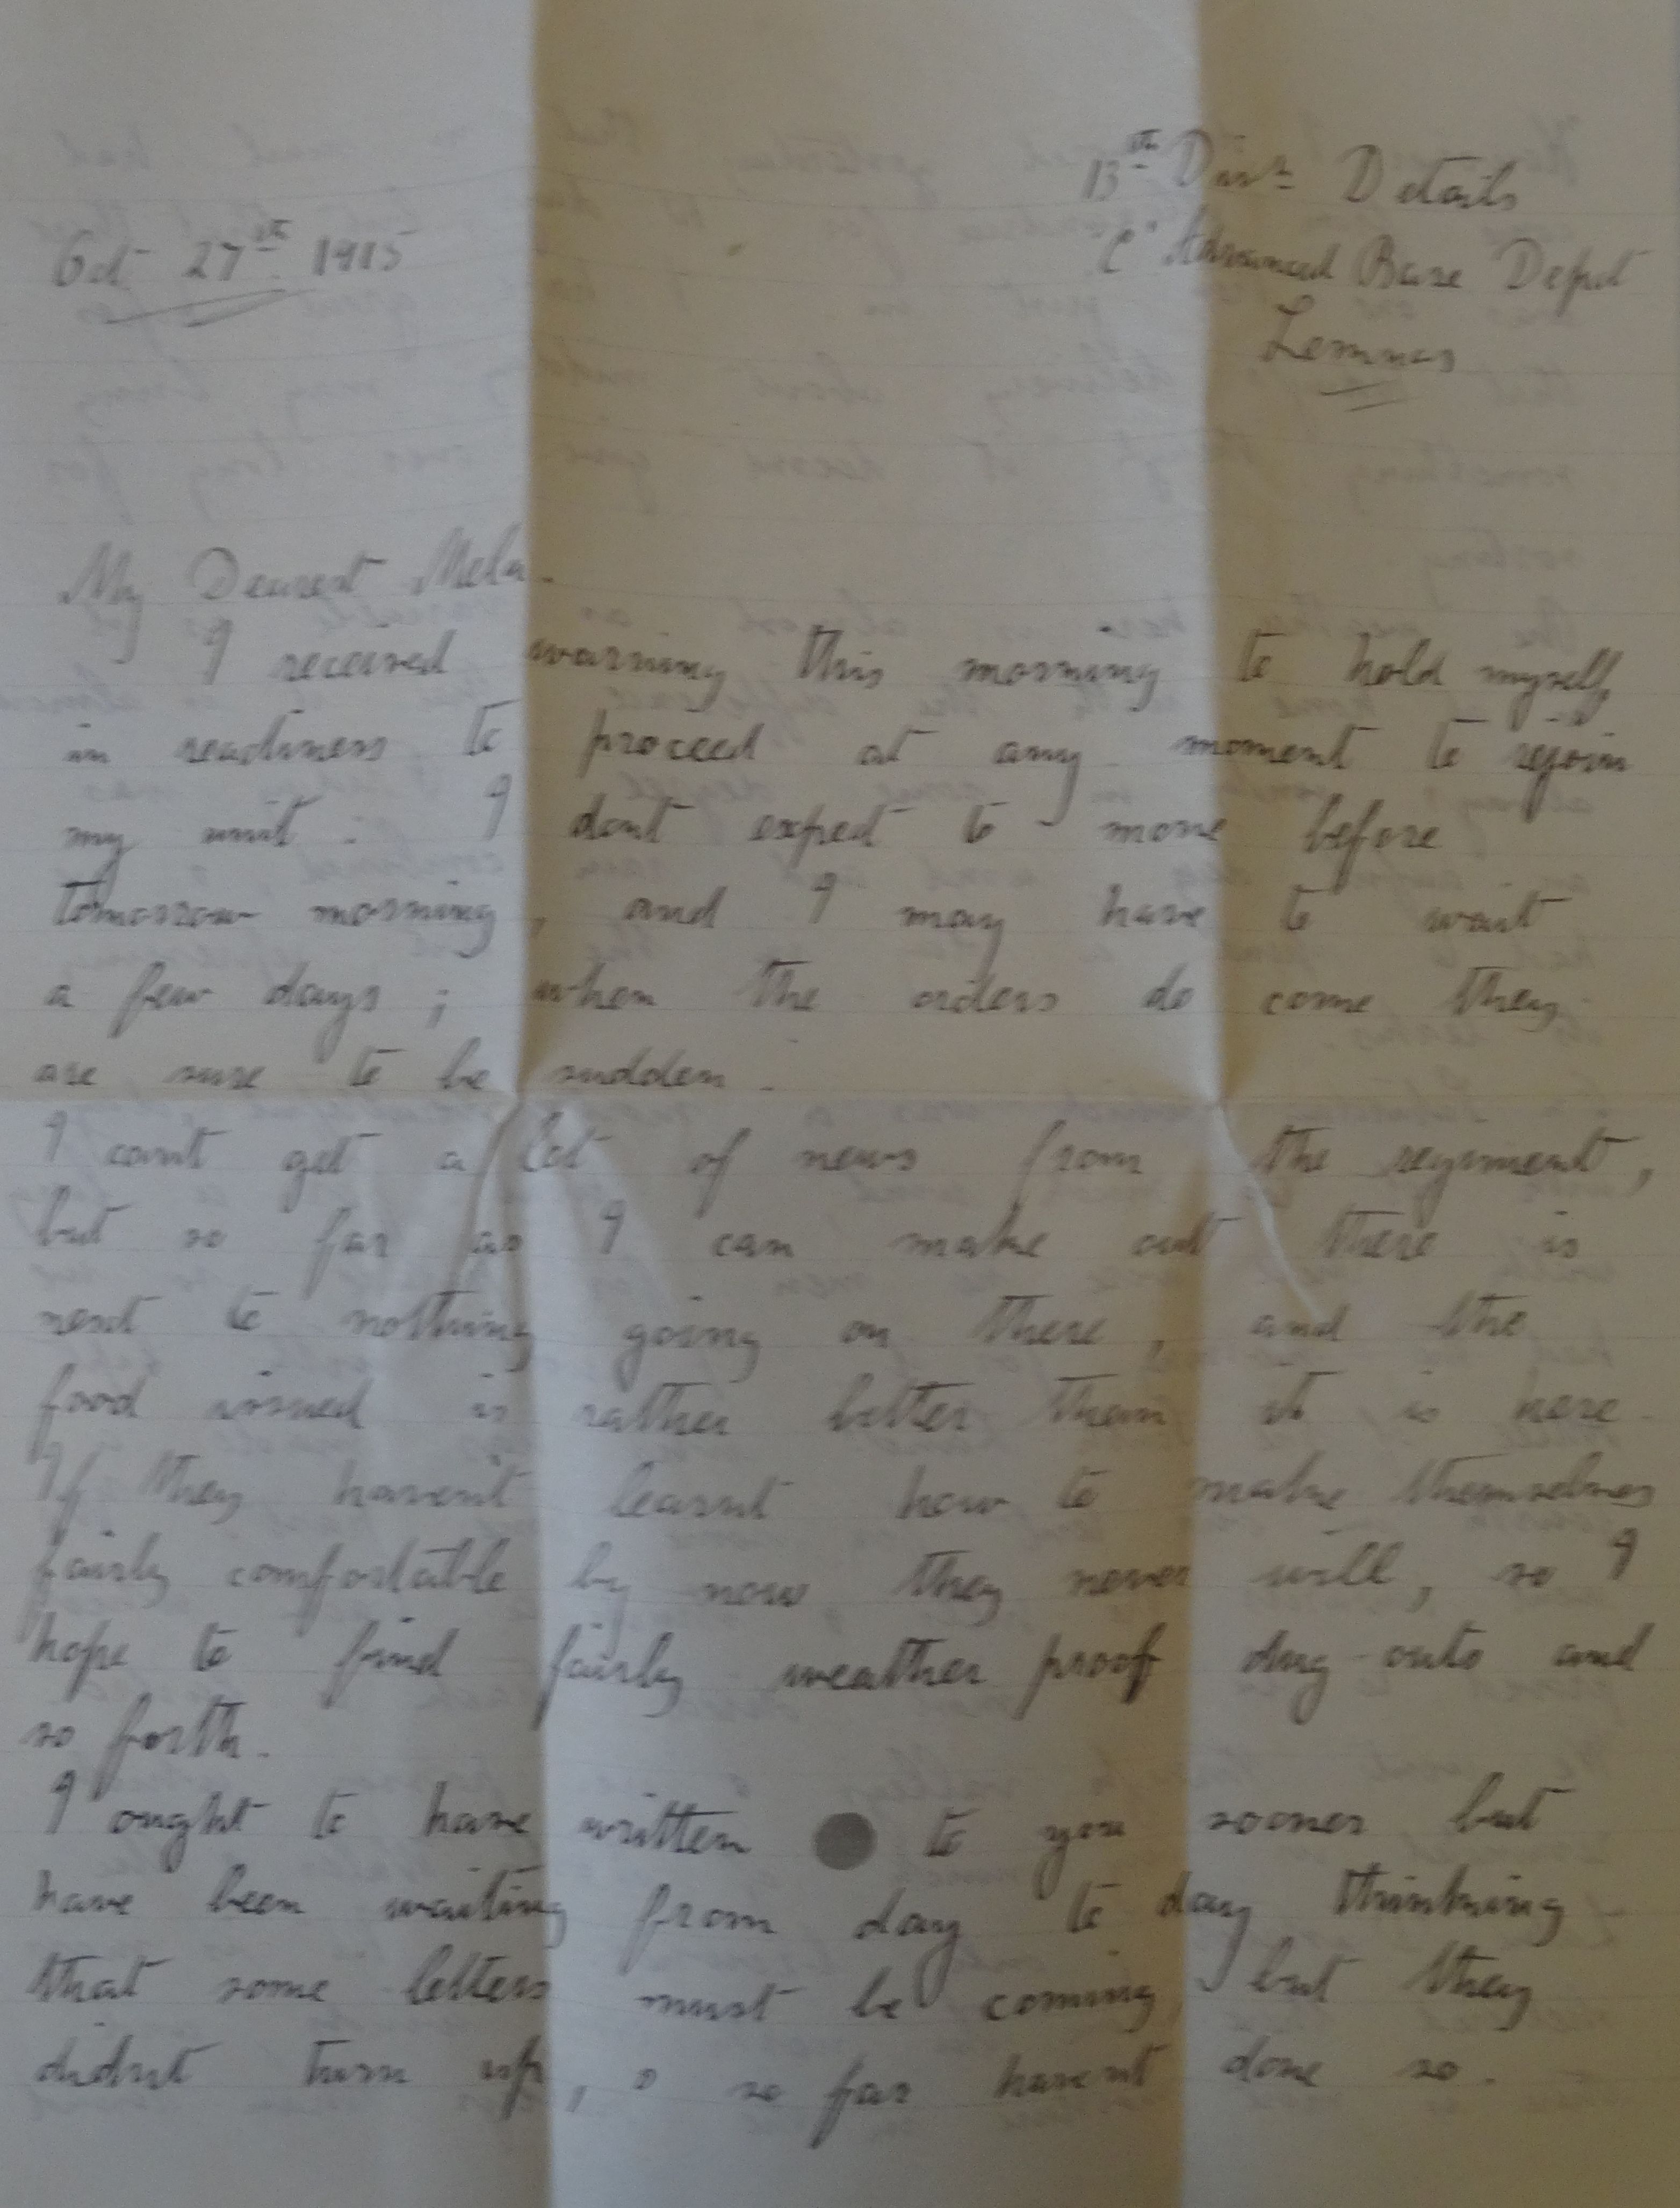 13th Divn Details
C' Advanced Base Depot
Lemnos
Oct 27th 1915
My Dearest Mela.
I received warning this morning to hold myself
in readiness to proceed at any moment to rejoin
my unit. I dont expect to move before
tomorrow morning, and I may have to wait
a few days; when the orders do come they
are sure to be sudden.
I cant get a lot of news from the regiment,
but so far as I can make out there is
next to nothing going on there, and the
food issued is rather better than it is here.
If they haven't learnt how to make themselves
fairly comfortable by now they never will, so I
hope to find fairly weather proof dug-outs and
so forth.
I ought to have written to you sooner but
have been waiting from day to day thinking
that some letters must be coming, but they
didnt turn up, so far havent done so.